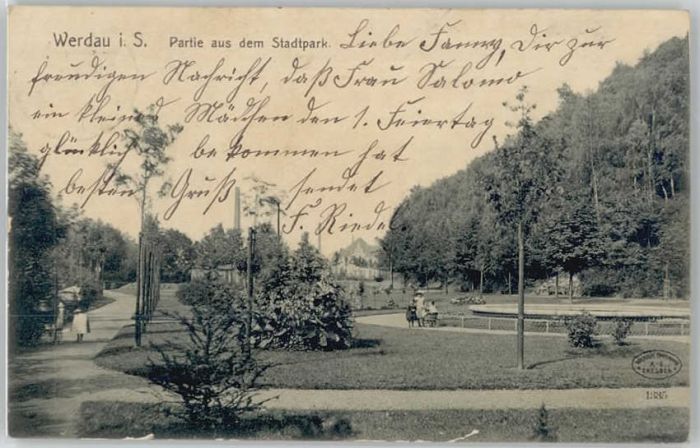 Werdau i. S. Partie aus dem Stadtpark.
Liebe Fanny, Dir zur
freudigen Nachricht, daß Frau Salomo
ein kleines Mädchen den 1. Feiertag
glücklich bekommen hat
besten Gruß sendet
F. Riedel.
DRESDEN